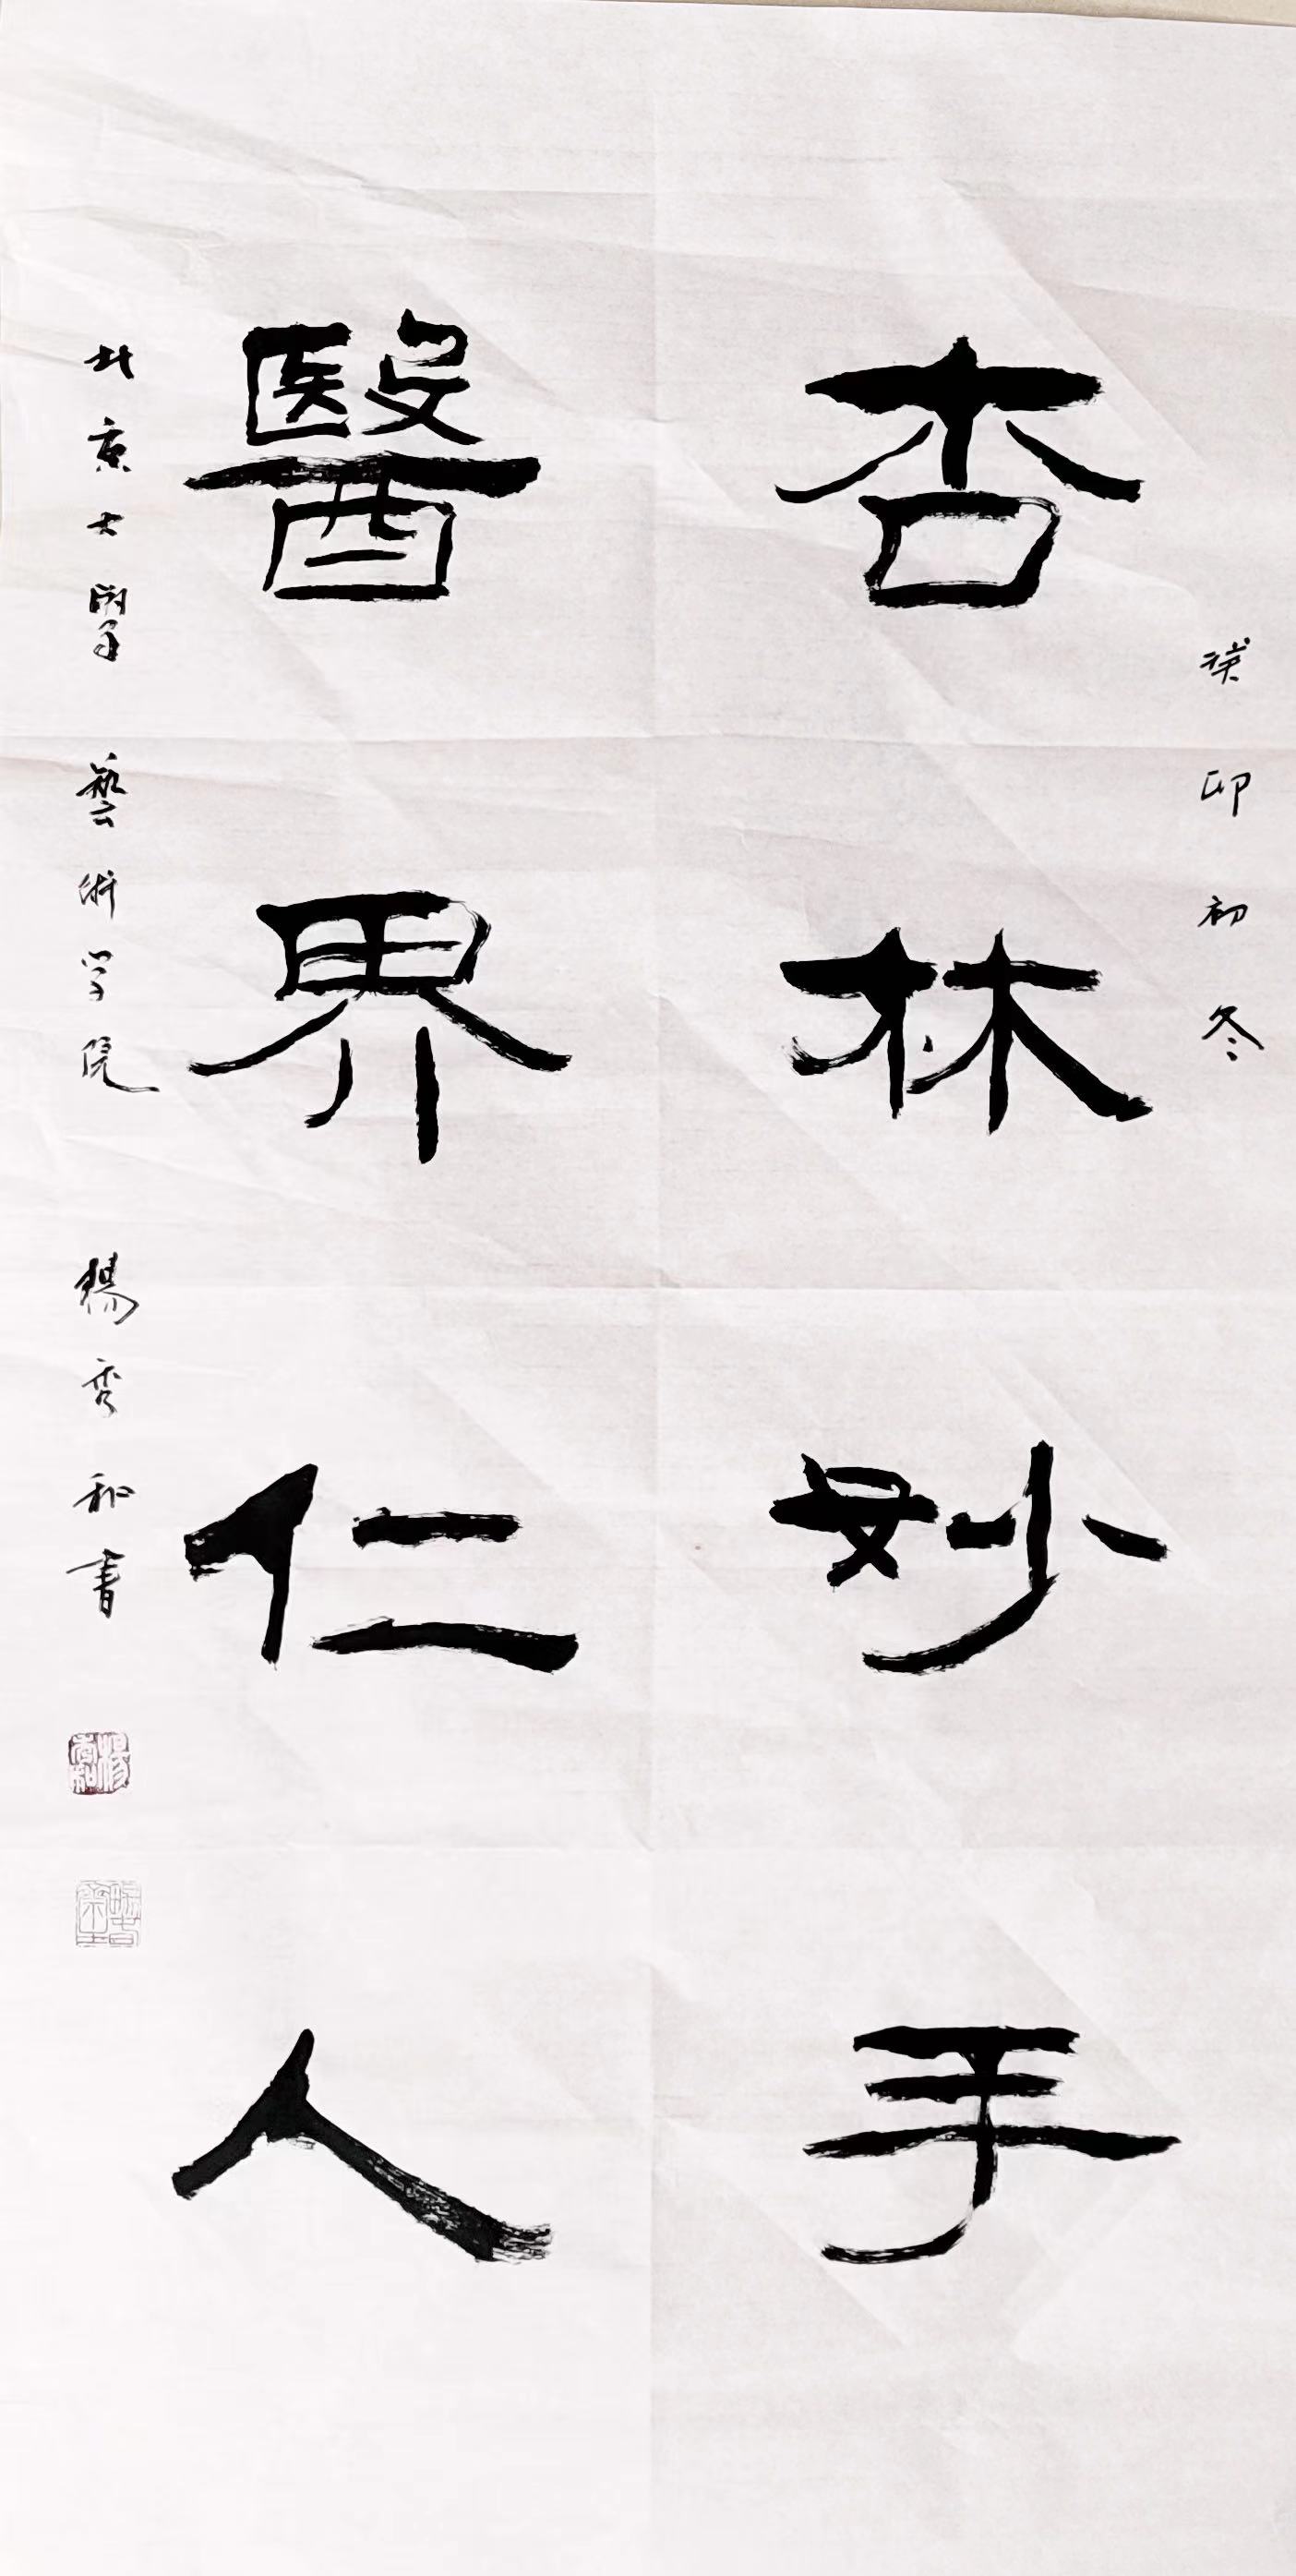 癸卯初冬
杏林妙手
醫界仁人
北京大學 藝術学院 楊秀和書
楊秀和